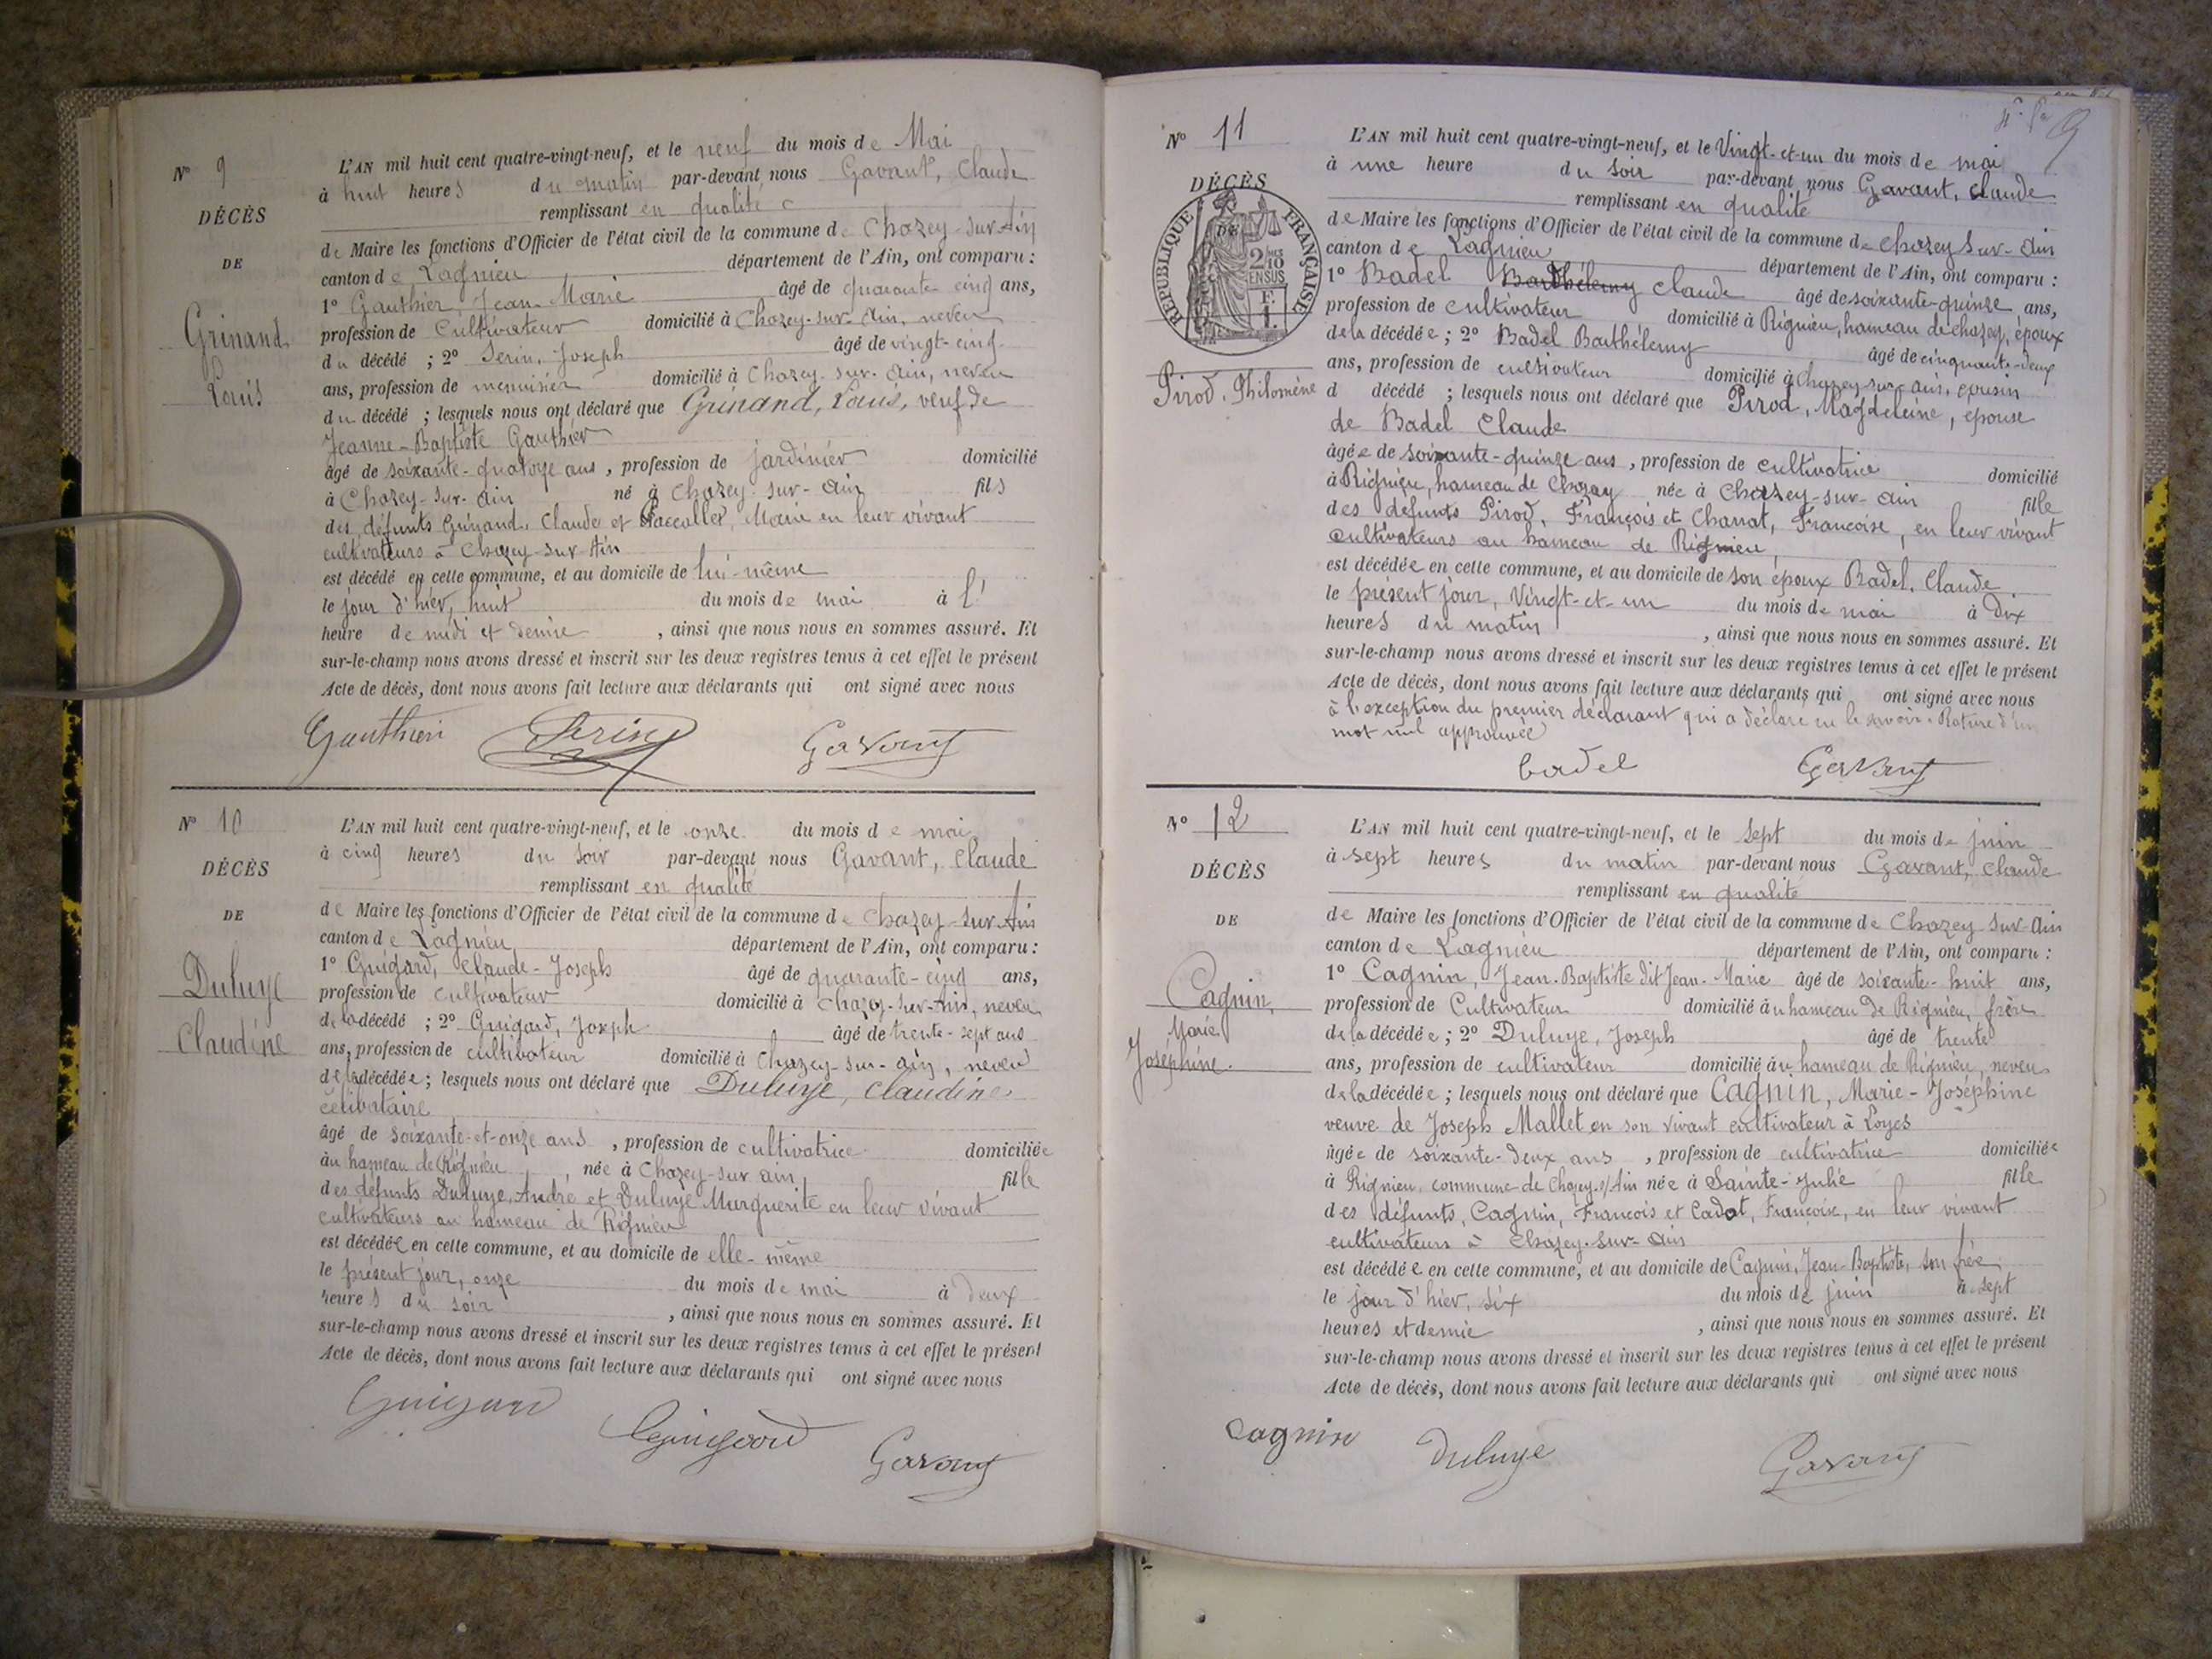 N° 9
DÉCÈS
DE
Grinand
Louis
L'AN mil huit cent quatre-vingt-neuf, et le neuf du mois de Mai
à huit heures du matin par-devant nous Gavant, Claude
remplissant en qualité
de Maire les fonctions d'Officier de l'état civil de la commune de Chazey-sur-Ain
canton de Lagnieu département de l'Ain, ont comparu :
1° Gauthier, Jean-Marie âgé de quarante cinq ans,
profession de Cultivateur domicilié à Chazey-sur-Ain, neveu
du décédé ; 2° Serin, Joseph âgé de vingt-cinq
ans, profession de menuisier domicilié à Chazey-sur-Ain, neveu
du décédé ; lesquels nous ont déclaré que Grinand, Louis, veuf de
Jeanne-Baptiste Gauthier
âgé de soixante-quatorze ans, profession de jardinier domicilié
à Chazey-sur-Ain né à Chazey-sur-Ain fils
des défunts Grinand, Claude et Marie en leur vivant
cultivateurs à Chazey-sur-Ain
est décédé en cette commune, et au domicile de lui-même
le jour d'hier, huit du mois de mai à l'
heure de midi et demie , ainsi que nous nous en sommes assuré. Et
sur-le-champ nous avons dressé et inscrit sur les deux registres tenus à cet effet le présent
Acte de décès, dont nous avons fait lecture aux déclarants qui ont signé avec nous
Gauthier Serin Gavant
N° 10
DÉCÈS
DE
Duluye
Claudine
L'AN mil huit cent quatre-vingt-neuf, et le onze du mois de mai
à cinq heures du soir par-devant nous Gavant, Claude
remplissant en qualité
de Maire les fonctions d'Officier de l'état civil de la commune de Chazey-sur-Ain
canton de Lagnieu département de l'Ain, ont comparu :
1° Guigard, Claude-Joseph âgé de quarante-cinq ans,
profession de cultivateur domicilié à Chazey-sur-Ain, neveu
de la décédé ; 2° Guigard, Joseph âgé de trente-sept ans
ans, profession de cultivateur domicilié à Chazey-sur-ain, neveu
de la décédée ; lesquels nous ont déclaré que Duluye, Claudine
célibataire
âgé de soixante-et-onze ans, profession de cultivatrice domiciliée
au hameau de Rignieu, née à Chazey-sur ain fille
des défunts Duluye, André et Duluye Marguerite en leur vivant
cultivateurs au hameau de Rignieu
est décédée en cette commune, et au domicile de elle-même
le présent jour, onze du mois de mai à deux
heures du soir , ainsi que nous nous en sommes assuré. Et
sur-le-champ nous avons dressé et inscrit sur les deux registres tenus à cet effet le présent
Acte de décès, dont nous avons fait lecture aux déclarants qui ont signé avec nous
Guigard Guigard Gavant
9
N° 11
DÉCÈS
DE
RÉPUBLIQUE FRANÇAISE
2/10 EN SUS
Pirod, Philomène
L'AN mil huit cent quatre-vingt-neuf, et le Vingt-et-un du mois de mai
à une heure du soir par-devant nous Gavant, Claude
remplissant en qualité
de Maire les fonctions d'Officier de l'état civil de la commune de Chazey sur-Ain
canton de Lagnieu département de l'Ain, ont comparu :
1° Badel Barthélemy Claude âgé de soixante-quinze ans,
profession de cultivateur domicilié à Rignieu, hameau de chazey, époux
de la décédée ; 2° Badel Barthélemy âgé de cinquante-deux
ans, profession de cultivateur domicilié à Chazey-sur-ain, cousin
d décédé ; lesquels nous ont déclaré que Pirod, Magdeleine, épouse
de Badel Claude
âgée de soixante-quinze ans, profession de cultivatrice domicilié
à Rignieu, hameau de Chazey née à Chazey-sur-ain fille
des défunts Pirod, François et Charrat, Françoise, en leur vivant
cultivateurs au hameau de Rignieu,
est décédée en cette commune, et au domicile de son époux Badel, Claude
le présent jour, Vingt-et-un du mois de mai à Dix
heures du matin , ainsi que nous nous en sommes assuré. Et
sur-le-champ nous avons dressé et inscrit sur les deux registres tenus à cet effet le présent
Acte de décès, dont nous avons fait lecture aux déclarants qui ont signé avec nous
à l'exception du premier déclarant qui a déclaré ne le savoir. Rature d'un
mot nul approuvée
badel Gavant
N° 12
DÉCÈS
DE
Cagnin,
Marie
Joséphine.
L'AN mil huit cent quatre-vingt-neuf, et le sept du mois de juin
à sept heures du matin par-devant nous Gavant, Claude
remplissant en qualité
de Maire les fonctions d'Officier de l'état civil de la commune de Chazey-sur-Ain
canton de Lagnieu département de l'Ain, ont comparu :
1° Cagnin, Jean-Baptiste dit Jean-Marie âgé de soixante-huit ans,
profession de Cultivateur domicilié au hameau de Rignieu, frère
de la décédée ; 2° Duluye, Joseph âgé de trente
ans, profession de cultivateur domicilié au hameau de Rignieu, neveu
de la décédée ; lesquels nous ont déclaré que Cagnin, Marie-Joséphine
veuve de Joseph Mallet en son vivant cultivateur à Loyes
âgée de soixante-deux ans, profession de cultivatrice domiciliée
à Rignieu, commune de Chazey-s/Ain née à Sainte-Julie fille
des défunts, Cagnin, François et Cadot, Françoise, en leur vivant
cultivateurs à Chazey-sur-Ain
est décédée en cette commune, et au domicile de Cagnin, Jean-Baptiste, son frère
le jour d'hier, six du mois de juin à sept
heures et demie , ainsi que nous nous en sommes assuré. Et
sur-le-champ nous avons dressé et inscrit sur les deux registres tenus à cet effet le présent
Acte de décès, dont nous avons fait lecture aux déclarants qui ont signé avec nous
Cagnin Duluye Gavant